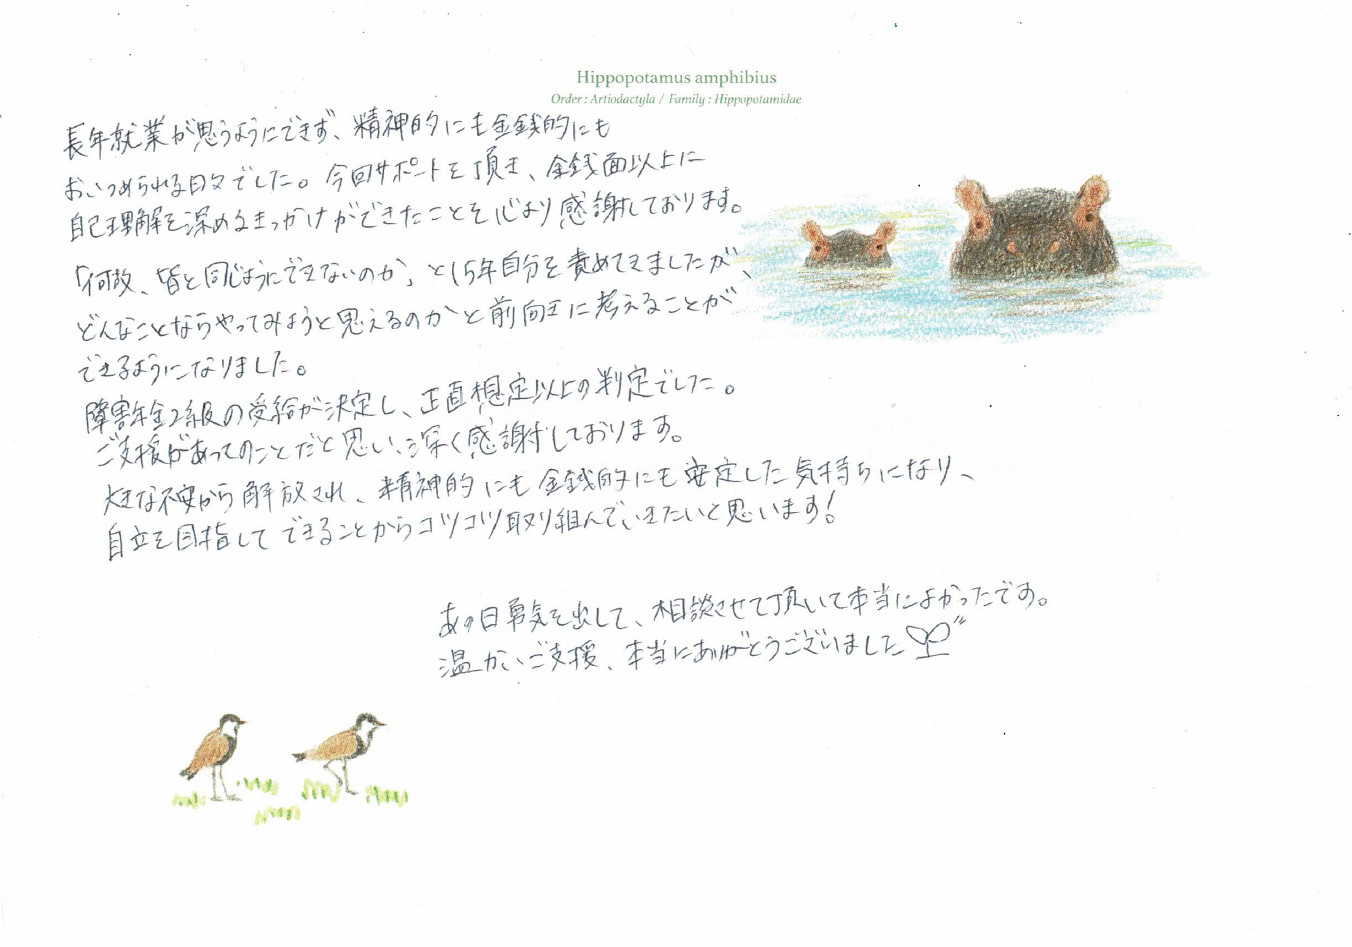 Hippopotamus amphibius
Order : Artiodactyla / Family : Hippopotamidae
長年就業が思うようにできず、精神的にも金銭的にも
おいつめられる日々でした。今回サポートを頂き、金銭面以上に
自己理解を深めるきっかけができたことを心より感謝しております。
「何故、皆と同じようにできないのか」と15年自分を責めてきましたが、
どんなことならやってみようと思えるのかと前向きに考えることが
できるようになりました。
障害年金2級の受給が決定し、正直想定以上の判定でした。
ご支援があってのことだと思い、深く感謝しております。
大きな不安から解放され、精神的にも金銭的にも安定した気持ちになり、
自立を目指してできることからコツコツ取り組んでいきたいと思います!
あの日勇気を出して、相談させて頂いて本当によかったです。
温かいご支援、本当にありがとうございました